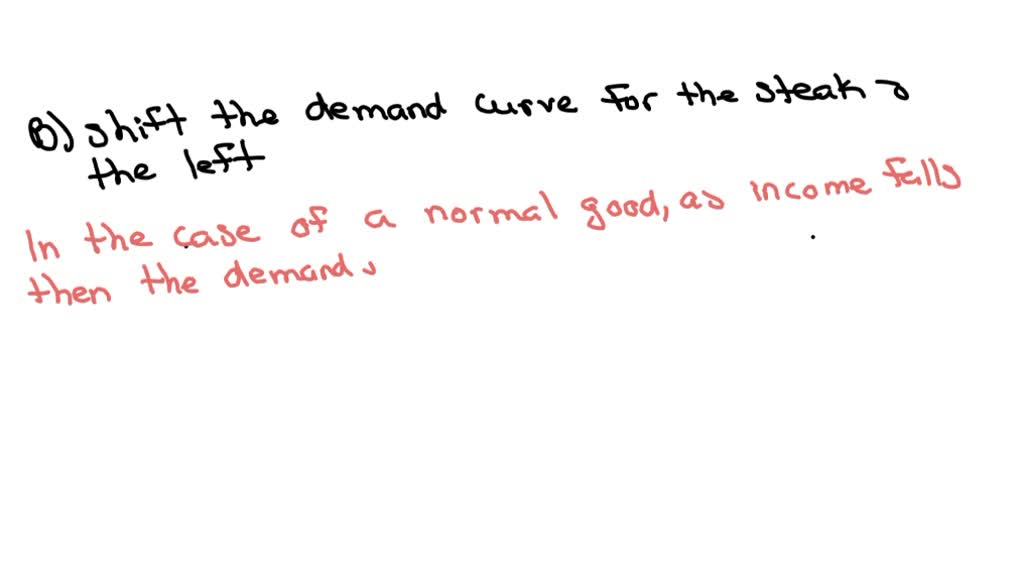 B) shift the demand curve for the steak
the left
In the case of a normal good, as income falls
then the demand